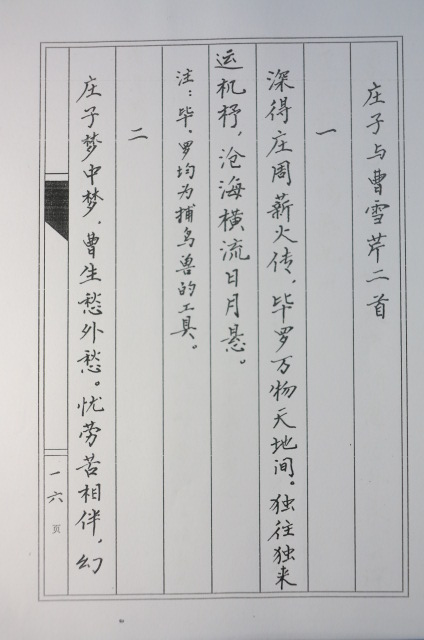 庄子与曹雪芹二首
一
深得庄周薪火传，毕罗万物天地间。独往独来
运机杼，沧海横流日月悬。
注：毕、罗均为捕鸟兽的工具。
二
庄子梦中梦，曹生愁外愁。忧劳苦相伴，幻
一六页